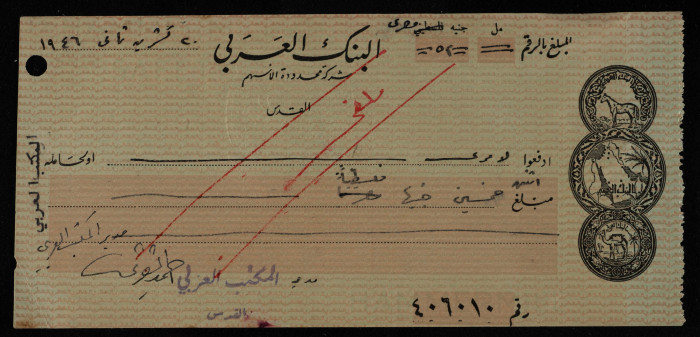 ٢٠ تشرين ثاني ١٩٤٦
البنك العربي
شركة محدودة الأسهم
القدس
المبلغ بالرقم
مل
جنيه فلسطيني مصري
٥٢
ملغى
ادفعوا لأمر
او لحامله
مبلغ اثنين خمسين جنيها
مدير المكتب العربي
المكتب العربي
مدير المكتب العربي
القدس
رقم ٤٠٦٠١٠